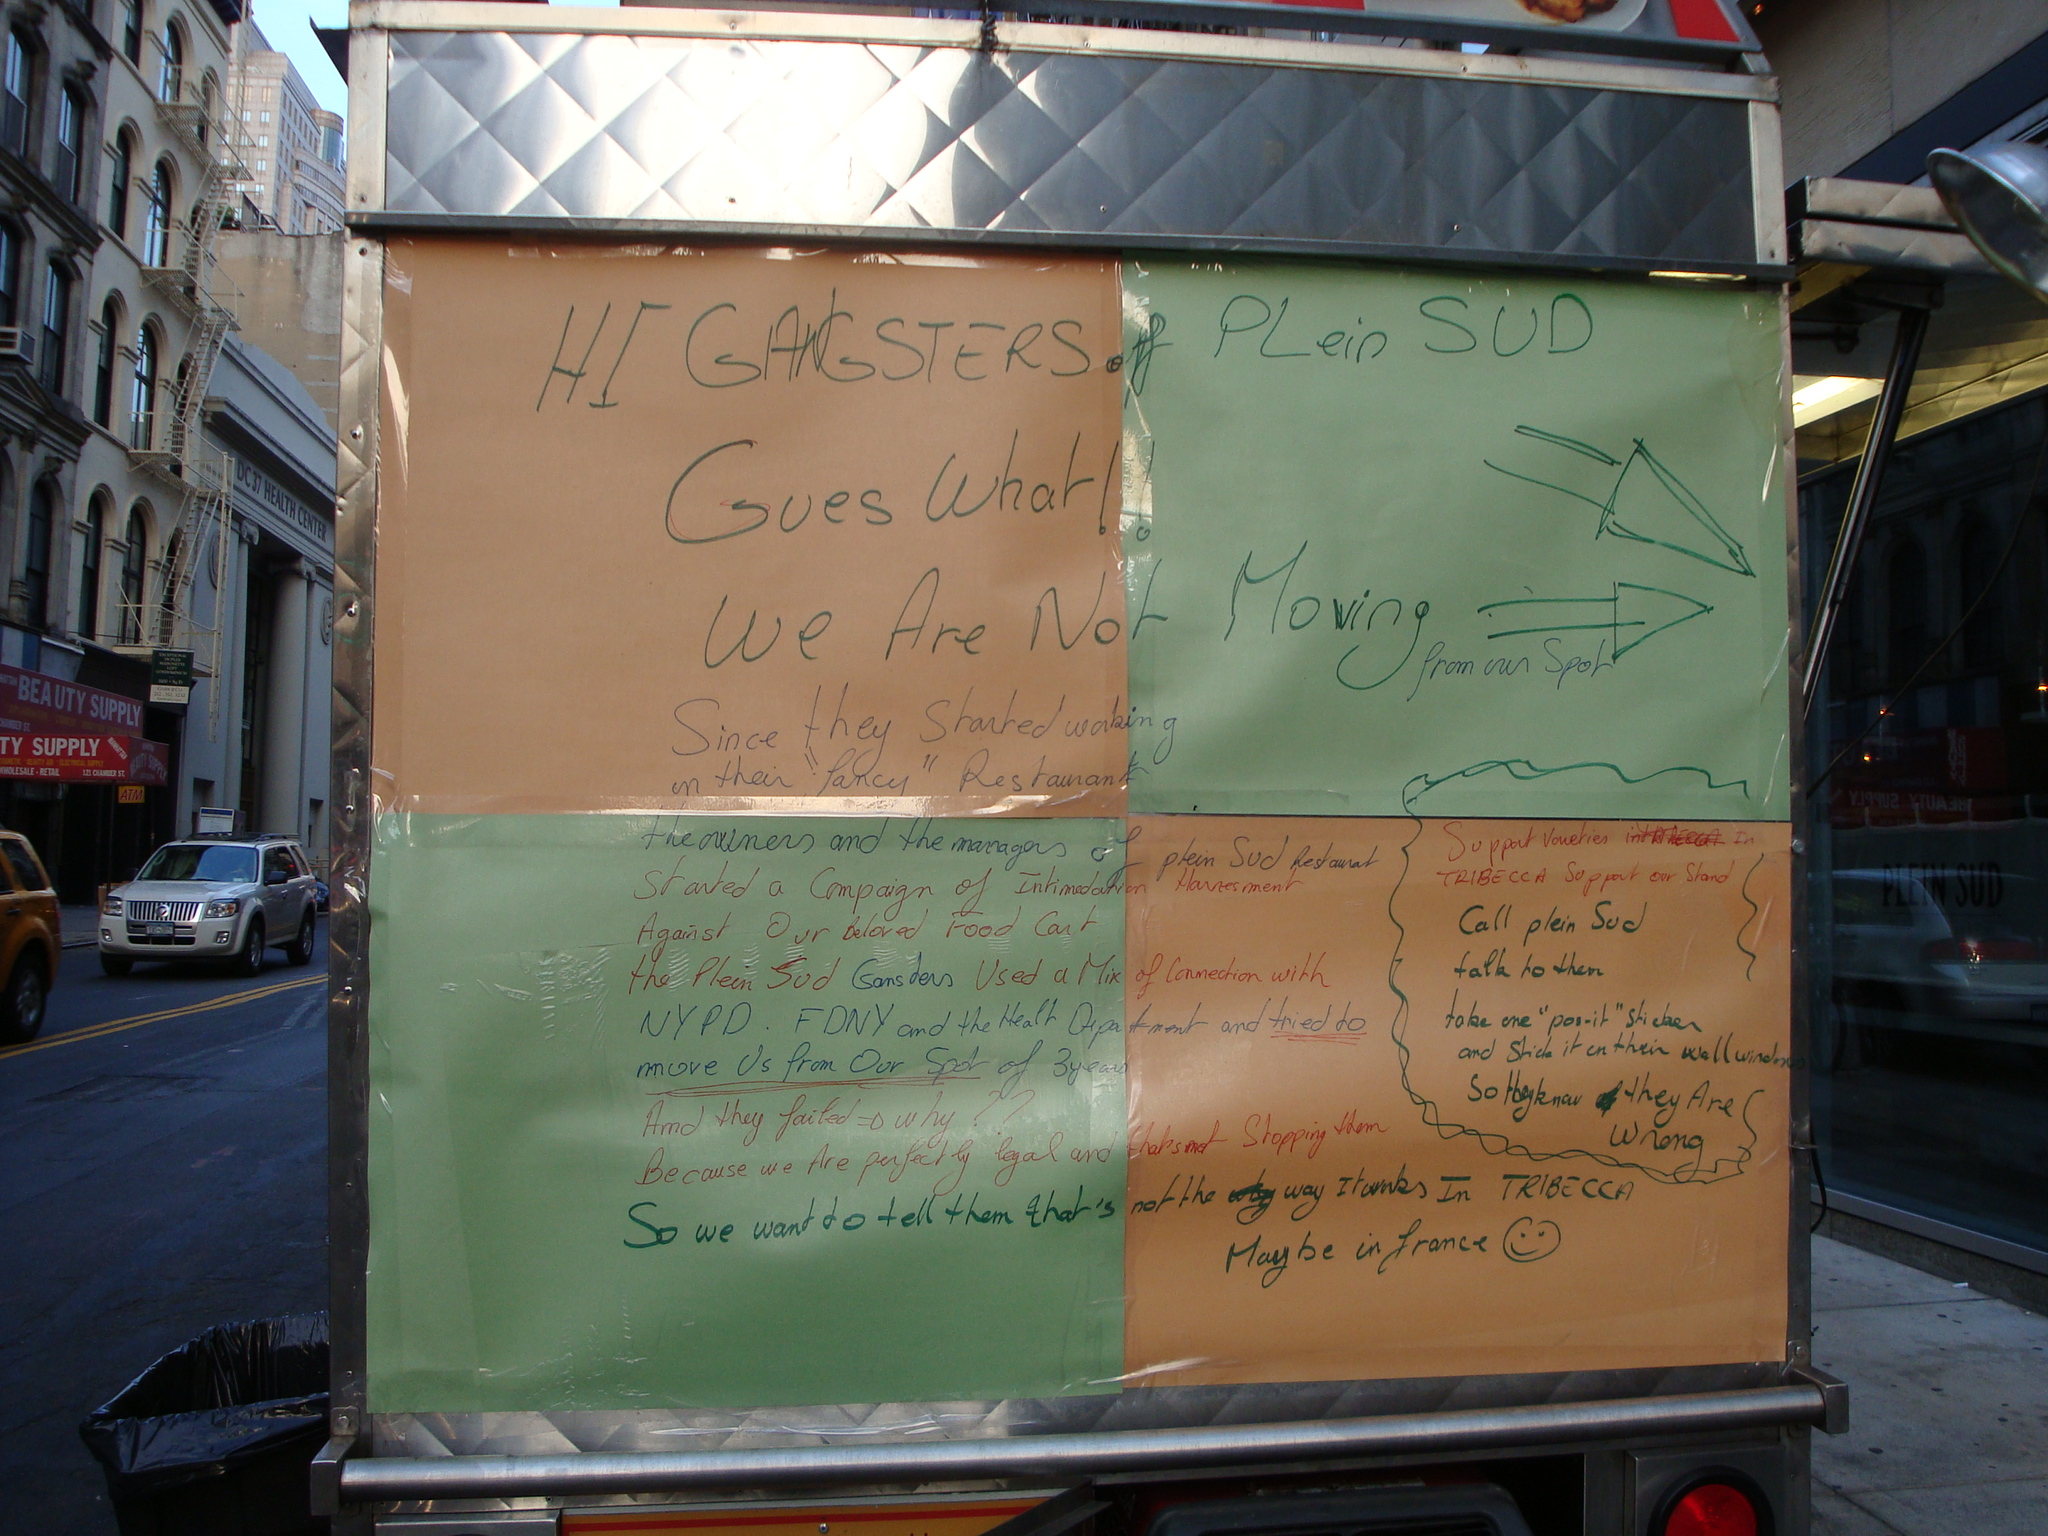 HI GANGSTERS of PLein SUD
Gues What!!
We Are Not Moving
from our Spot
Since they Started working
in their "fancy" Restaurant
the owners and the managers of plein Sud Restaurat
Started a Compaign of Intimedation Harresment
Against Our Beloved Food Cart
the Plein Sud Gansders Used a Mix of Connection with
NYPD. FDNY and the Healt Department and tried to
move Us from Our Spot of 3 years
And they failed => why??
Because we Are perfectly legal and thats not Stopping them
So we want to tell them that's not the way It works In TRIBECCA
Maybe in france
Support In
TRIBECCA Support our Stand
Call plein Sud
talk to them
take one "pos-it" Sticker
and Stick it on their wall windows
So they know they Are
Wrong
DC 37 HEALTH CENTER
BEAUTY SUPPLY
CHAMBER ST.
TY SUPPLY
WHOLESALE - RETAIL 121 CHAMBER ST.
BEAUTY SUPPLY
ATM
PLEIN SUD